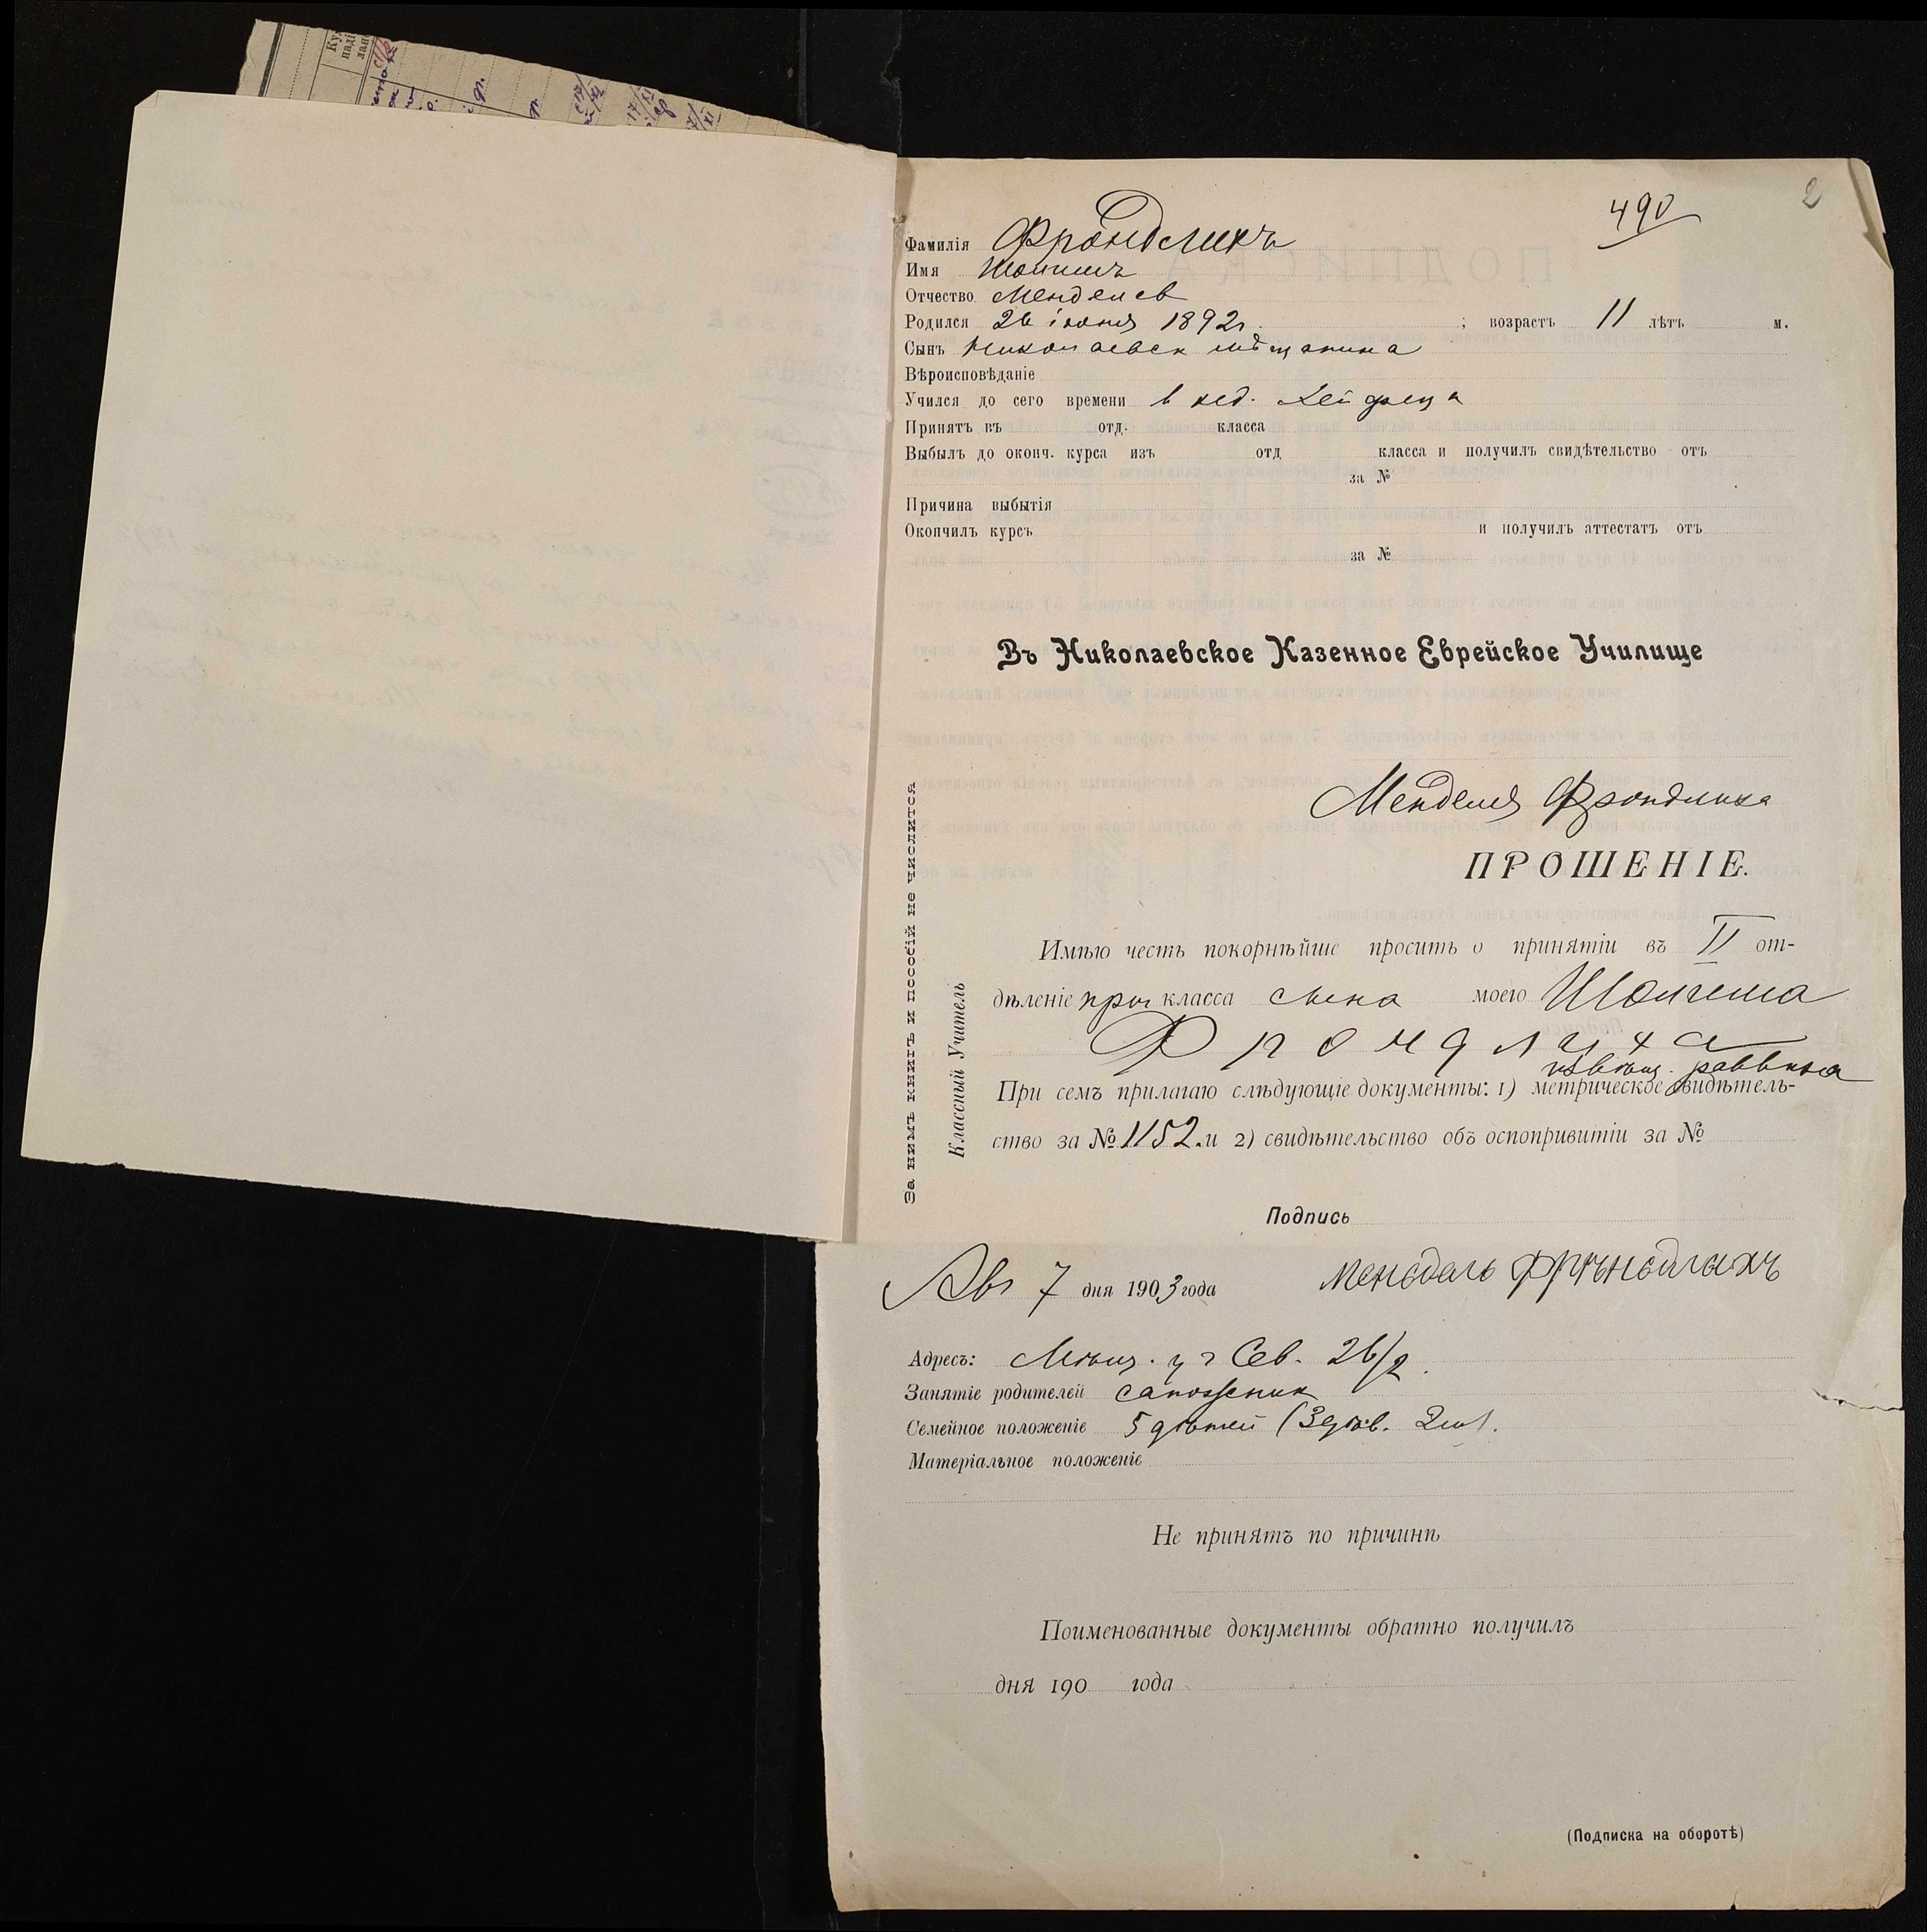 490
2
Фамилія Фрондликъ
Имя
Отчество Менделев
Родился 26 іюня 1892г. ; возрастъ 11 лѣтъ м.
Сынъ Николаевск мѣщанина
Вѣроисповѣданіе
Учился до сего времени в хед. Хейфеца
Принятъ въ отд. класса
Выбылъ до оконч. курса изъ отд класса и получилъ свидѣтельство отъ
за №
Причина выбытія
Окончилъ курсъ и получилъ аттестатъ отъ
за №
Въ Николаевское Казенное Еврейское Училище
Менделя Фрондлиха
ПРОШЕНІЕ.
Имѣю честь покорнѣйше просить о принятіи въ II от-
дѣленіе приг класса сына моего Шоилема
Фрондлиха
извѣщ. раввина
При семъ прилагаю слѣдующіе документы: 1) метрическое свидѣтель-
ство за № 1152. и 2) свидѣтельство объ оспопривитіи за №
Подпись
Авг 7 дня 1903 года Мендель
Адресъ: уг Сев. 26/2.
Занятіе родителей сапожник
Семейное положеніе 5 дѣтей (3 дѣв. 2 м).
Матеріальное положеніе
Не принятъ по причинѣ
Поименованные документы обратно получилъ
дня 190 года
(Подписка на оборотѣ)
За нимъ книгъ и пособій не числится
Классный Учитель